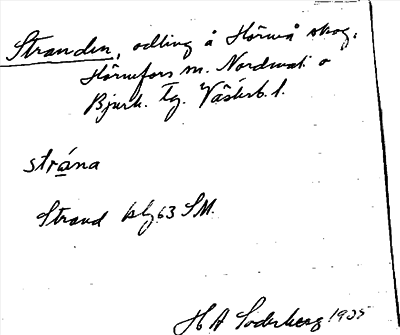 Stranden, odling å Hörneå skog,
Hörnefors sn. Nordmal. o
Bjurh. tg. Västerb. l.
strána
Strand blz 63 SM.
H A Söderberg 1935